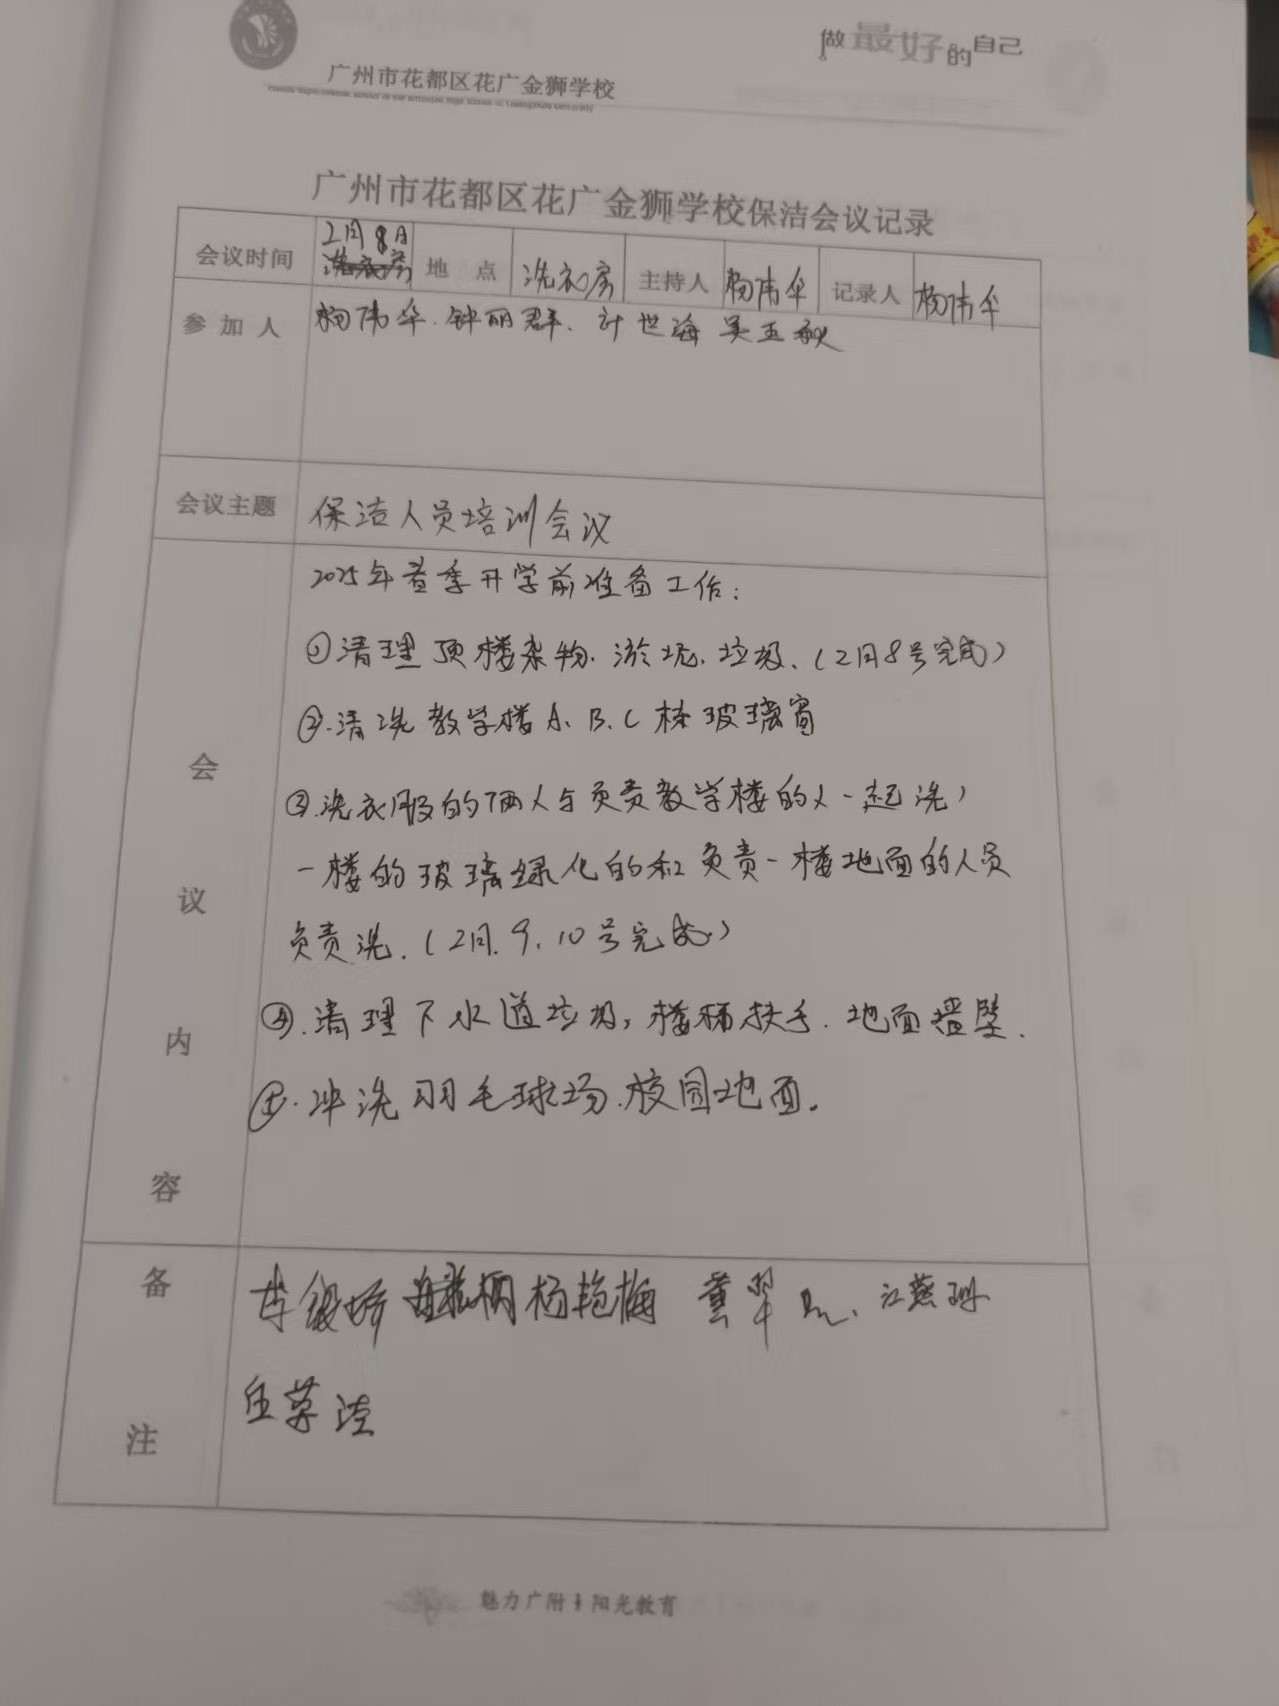 做最好的自己
广州市花都区花广金狮学校
广州市花都区花广金狮学校保洁会议记录
会议时间 2月8日 地点 洗衣房 主持人 杨伟华 记录人 杨伟华
参加人 杨伟华.钟丽群、计世海 吴玉秋
会议主题 保洁人员培训会议
会议内容
2025年春季开学前准备工作:
①清理顶楼杂物、淤坭、垃圾、(2月8号完成)
②.清洗教学楼A、B、C栋玻璃窗
③.洗衣服的俩人与负责教学楼的人一起洗,
一楼的玻璃绿化的和负责一楼地面的人员
负责洗.(2月.9、10号完成.)
④.清理下水道垃圾,楼梯扶手.地面墙壁.
⑤.冲洗羽毛球场.校园地面。
备注
杨艳梅 董翠 江燕珊
魅力广附 阳光教育